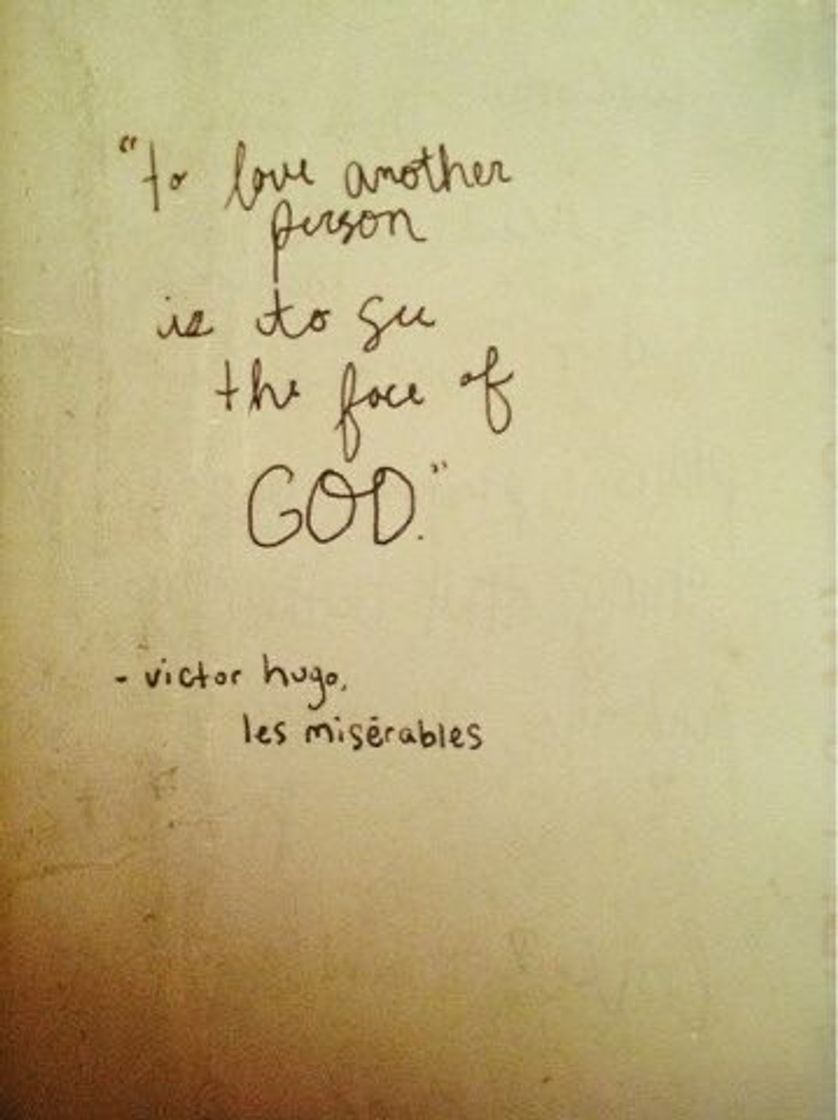 "to love another
person
is to see
the face of
GOD."
- victor hugo,
les misérables